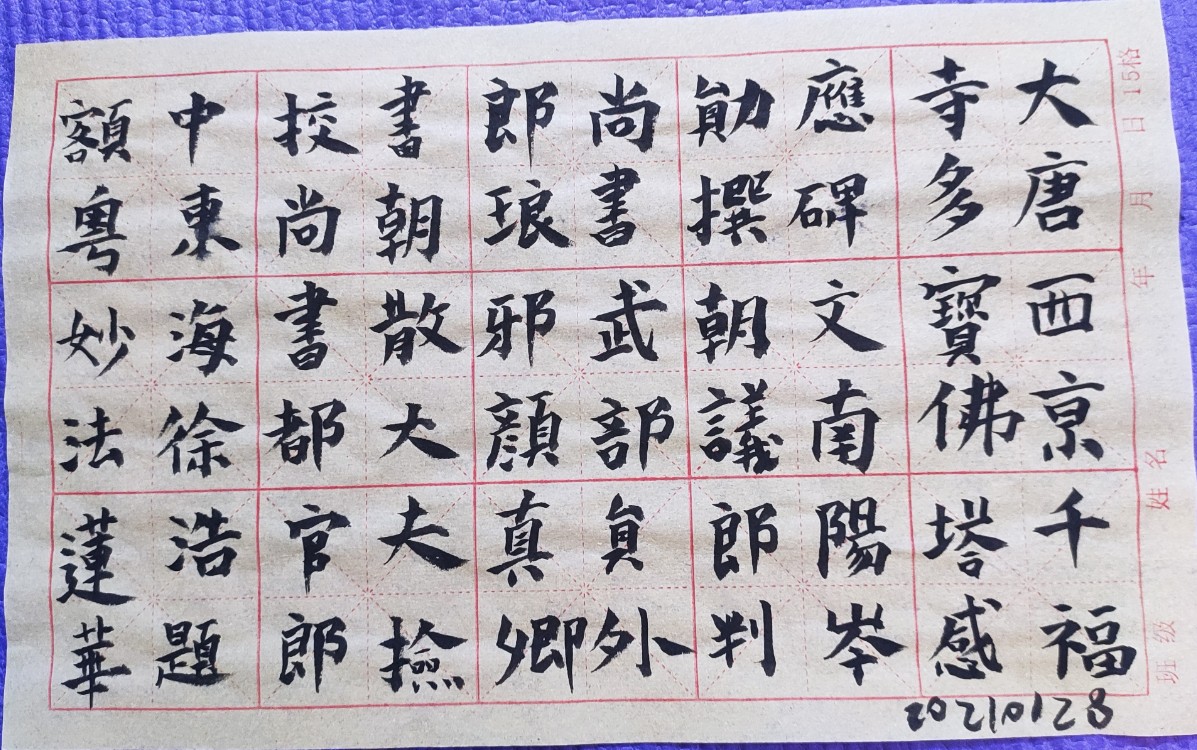 大唐西亰千福
寺多寶佛塔感
應碑文南陽岑
勛撰朝議郎判
尚書武部貟外
郎琅邪顏真卿
書朝散大夫撿
挍尚書都官郎
中東海徐浩題
額粵妙法蓮華
20210128
班级 姓名 年 月 日 15格